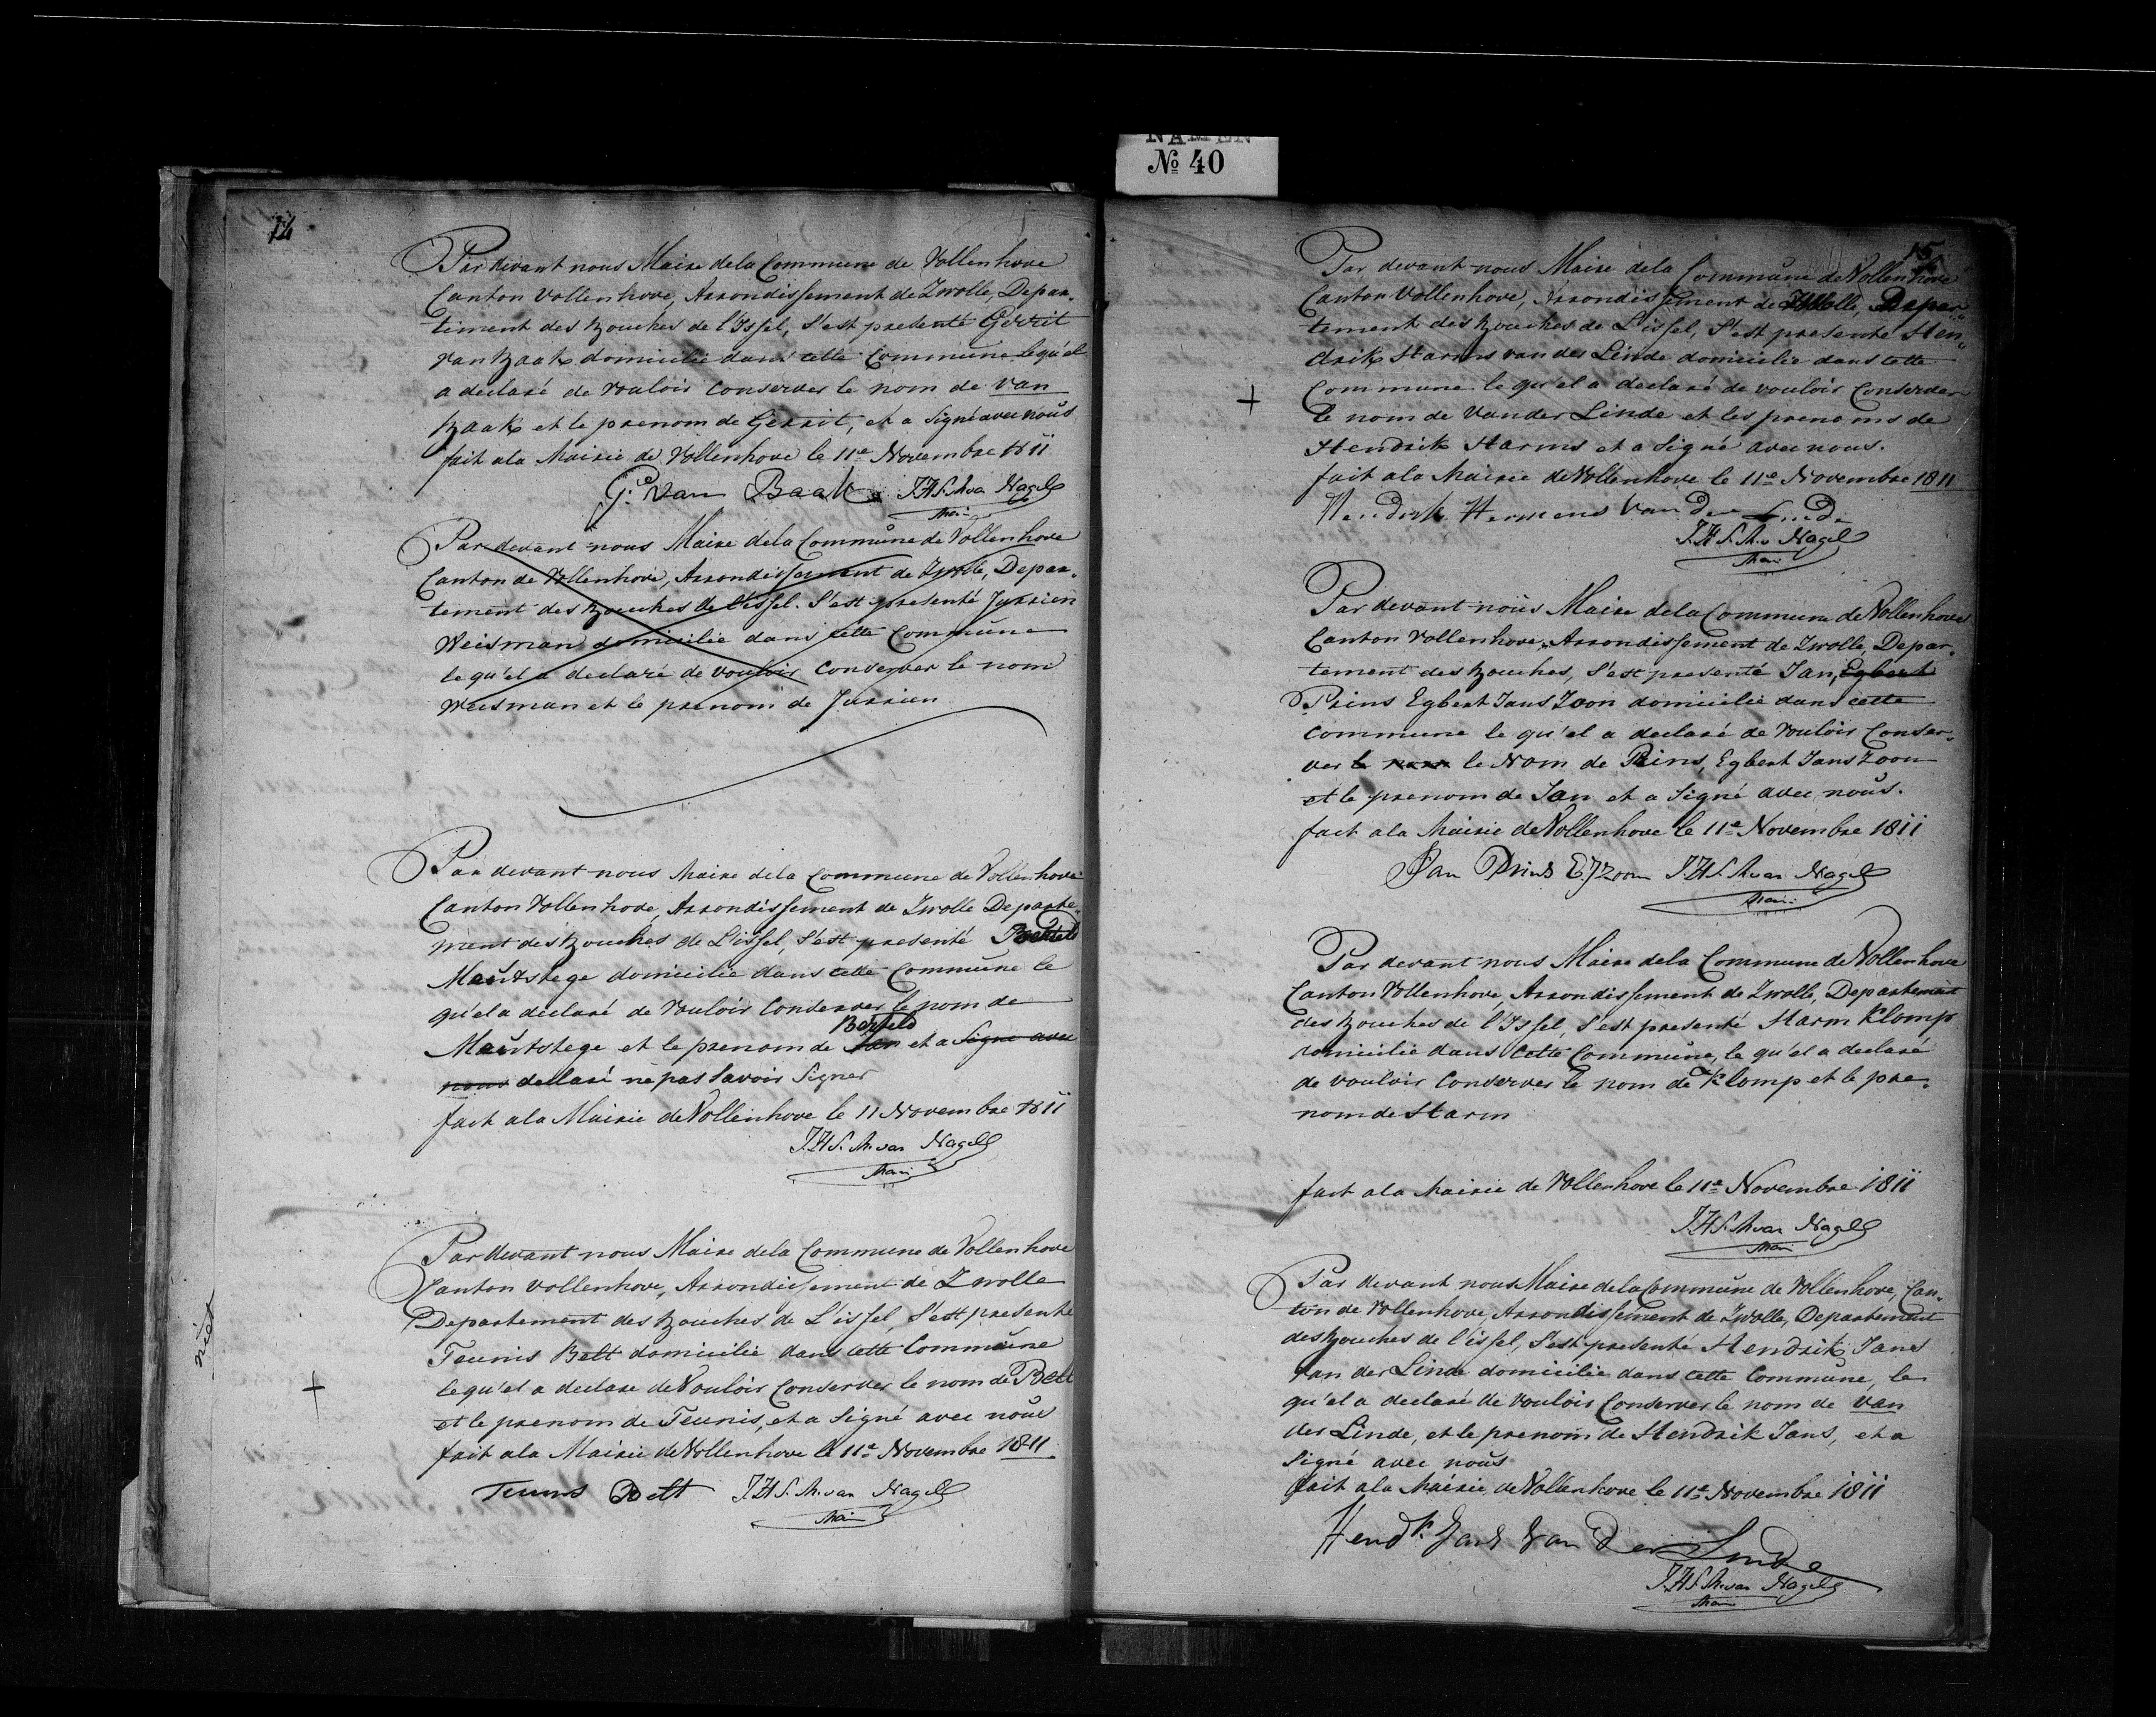 NAMEN
No 40
14
Par devant nous Maire dela Commune de Vollenhove
Canton Vollenhove, Arrondissement de Zwolle, Depar„
tement des Bouches de l'Issel, S'est presenté Gerrit
van Baak domicilie dans cette Commune lequ'el
a declaré de vouloir Conserver le nom de van
Baak et le prenom de Gerrit, et a Signé avec nous
fait ala Mairie de Vollenhove le 11e Novembre 1811
G. Van Baak J.H.S.M. van Nagel
Maire
Par devant nous Maire dela Commune de Vollenhove
Canton de Vollenhove, Arrondissement de Zwolle, Depar„
tement des Bouches de l'issel. S'est presenté Jurrien
Weisman domicilie dans cette Commune
lequ'el a declaré de vouloir Conserver le nom
Weisman et le prenom de Jurrien
Par devant nous Maire dela Commune de Vollenhove
Canton Vollenhove, Arrondissement de Zwolle Departe„
ment des Bouches de L'issel, S'est presenté Berteld
Mastege domicilie dans cette Commune le
qu'el a declaré de Vouloir Conserver le nom de
Berteld
et le prenom de Jan et a Signé avec
nous declaré ne pas Savoir Signer
fait ala Mairie de Vollenhove le 11 Novembre 1811
J.H.S.M. van Nagel
Maire
Par devant nous Maire dela Commune de Vollenhove
Canton Vollenhove, Arrondissement de Zwolle
Departement des Bouches de L'issel, S'est presenté
Teunis Belt domicilie dans cette Commune
lequ'el a declare de Vouloir Conserver le nom de Belt
et le prenom de Teunis, et a Signé avec nous
fait ala Mairie de Vollenhove le 11e Novembre 1811
Teunis Belt J.H.S.M. van Nagel
Maire
niet
+
15
Par devant nous Maire dela Commune de Vollenhove
Canton Vollenhove, Arrondissement de Zwolle, Depar„
tement des Bouches de L'issel, S'est presenté Hen„
drik Harms van der Linde domicilie dans cette
Commune le qu'el a declaré de vouloir Conserver
le nom de Van der Linde et les prenoms de
Hendrik Harms et a Signé avec nous.
fait ala Mairie de Vollenhove le 11e Novembre 1811
Hendirk Hermens van der Linde
J.H.S.M.v Nagel
Maire
+
Par devant nous Maire dela Commune de Vollenhove
Canton Vollenhove, Arrondissement de Zwolle, Depar„
tement des Bouches, S'est presenté Jan, Egbert
Prins Egbert Jans Zoon domicilie dans cette
Commune le qu'el a declaré de Vouloir Conser„
ver le nom le Nom de Prins, Egbert Jans Zoon
et le prenom de Jan et a Signé avec nous.
fait ala Mairie de Vollenhove le 11e Novembre 1811
Jan Prins E.J.Zoon J.H.S.M. van Nagel
Maire
Par devant nous Maire dela Commune de Vollenhove
Canton Vollenhove, Arrondissement de Zwolle, Departement
des Bouches de l'Issel, S'est presenté Harm Klomp
domicilie dans Cette Commune, le qu'el a declaré
de vouloir Conserver le nom de Klomp et le pre„
nom de Harm
fait ala Mairie de Vollenhove le 11e Novembre 1811
J.H.S.M. van Nagel
Maire
Par devant nous Maire dela Commune de Vollenhove, Can„
ton de Vollenhove, Arrondissement de Zwolle, Departement
des Bouches de l'issel, S'est presenté Hendrik Jans
van der Linde domicilie dans cette Commune, le
qu'el a declaré de vouloir Conserver le nom de van
der Linde, et le prenom de Hendrik Jans, et a
Signé avec nous
fait ala Mairie de Vollenhove le 11e Novembre 1811
Hendk. Jans Van Der Linde
J.H.S.M. van Nagel
Maire